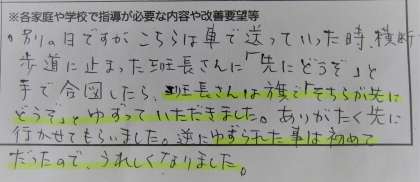 ※各家庭や学校で指導が必要な内容や改善要望等
・別の日ですがこちらは車で送っていった時、横断
歩道に止まった班長さんに「先にどうぞ」と
手で合図したら、班長さんは旗で「そちらが先に
どうぞ」とゆずっていただきました。ありがたく先に
行かせてもらいました。逆にゆずられた事は初めて
だったので、うれしくなりました。